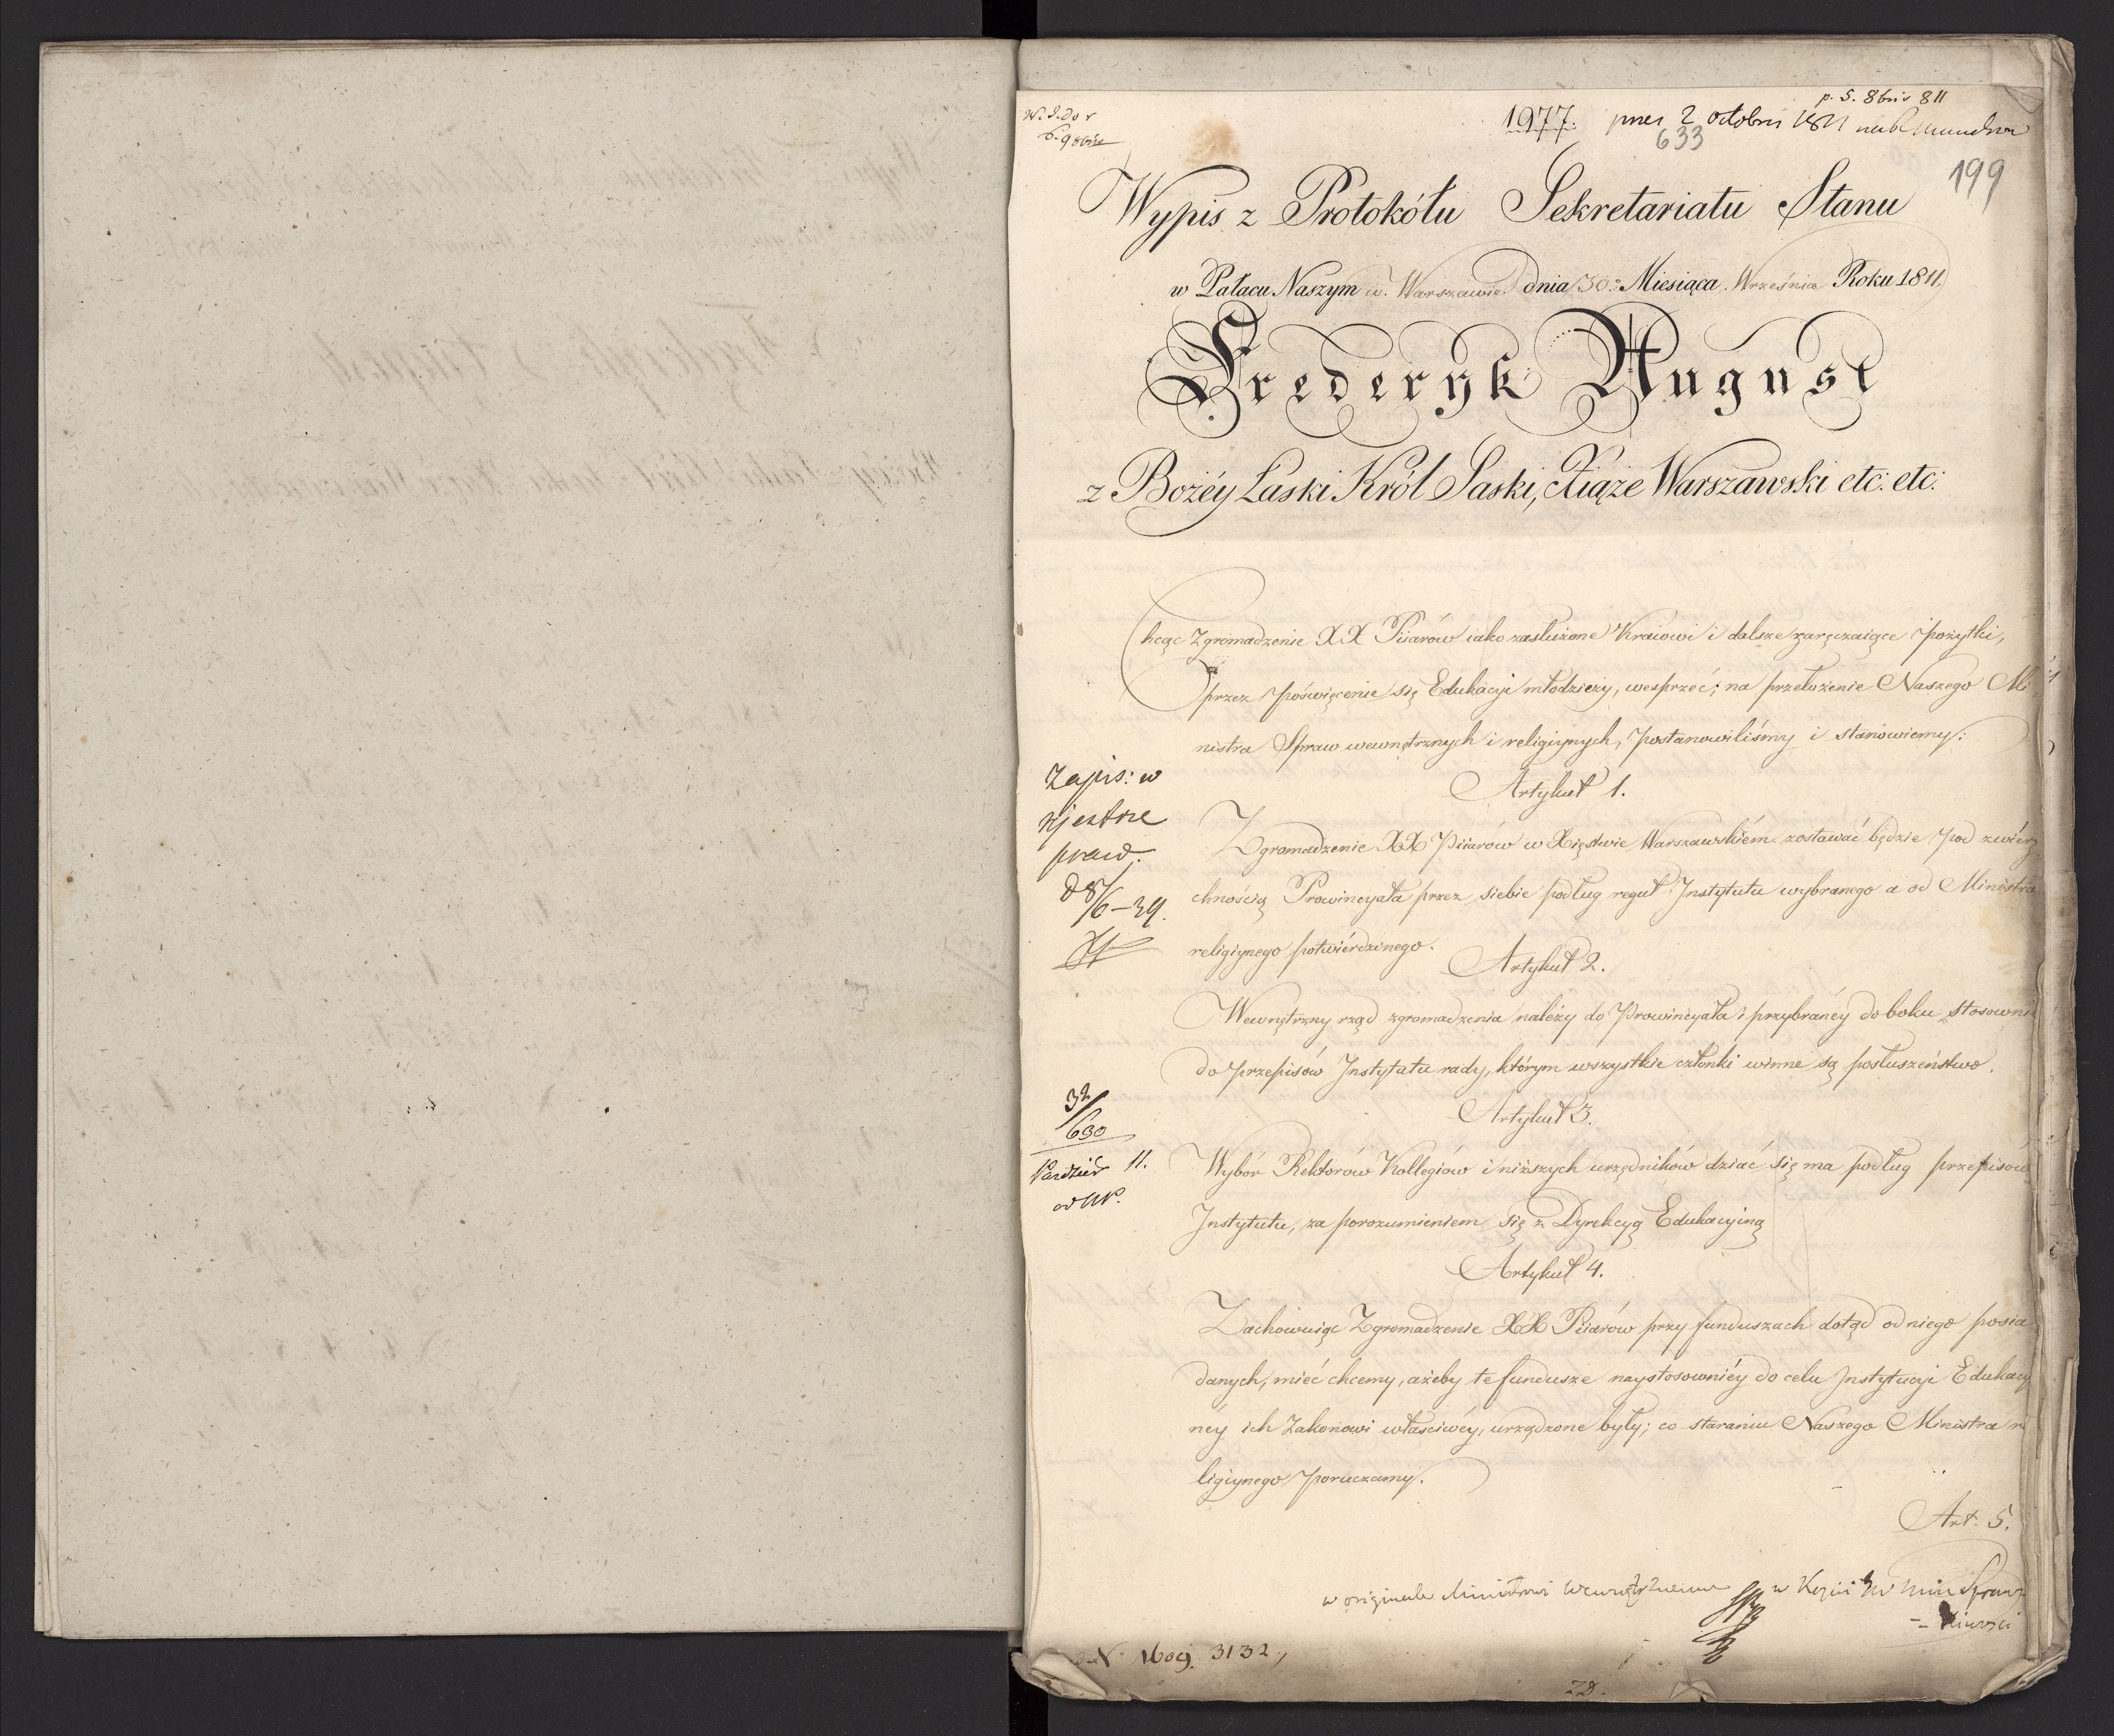 p. 5. 8bris 811
1977. 2 octobris 1811
633
199
Wypis z Protokółu Sekretariatu Stanu
w Pałacu Naszym w Warszawie dnia 30: Miesiąca Września Roku 1811.
Frederyk August
z Bożéy Łaski Król Saski, Xiąże Warszawski etc: etc:
Chcąc Zgromadzenie XX Piiarów iako zasłużone Kraiowi i dalsze zaręczaiące pożytki,
przez poświęcenie się Edukacyi młodzieży, wesprzeć; na przełożenie Naszego Mi
nistra Spraw wewnętrznych i religiynych, postanowiliśmy i stanowiemy:
Artykuł 1.
Zgromadzenie XX Piiarów w Xięstwie Warszawskiém zostawać będzie pod zwierz
chnością Prowincyała przez siebie podług reguł Instytutu wybranego a od Ministra
religiynego potwiérdzonego.
Artykuł 2.
Wewnętrzny rząd zgromadzenia należy do Prowincyała i przybranéy do boku stosownie
do przepisów Instytutu rady, którym wszystkie członki winne są posłuszeństwo.
Artykuł 3.
Wybór Rektorów Kollegiów i niższych urzędników dziać się ma podług przepisów
Instytutu, za porozumieniem się z Dyrekcyą Edukacyiną
Artykuł 4.
Zachowuiąc Zgromadzenie XX Piiarów przy funduszach dotąd od niego posia
danych, mieć chcemy, ażeby te fundusze naystosowniéy do celu Instytucyi Edukacy
néy ich Zakonowi właściwéy, urządzone były; co staraniu Naszego Ministra re
ligiynego poruczamy.
Art. 5.
Zapis: w
rjestrze
praw.
32/630
Paździer 11.
w originale Ministrowi Wewnętrznemu
N 1609. 3132.,